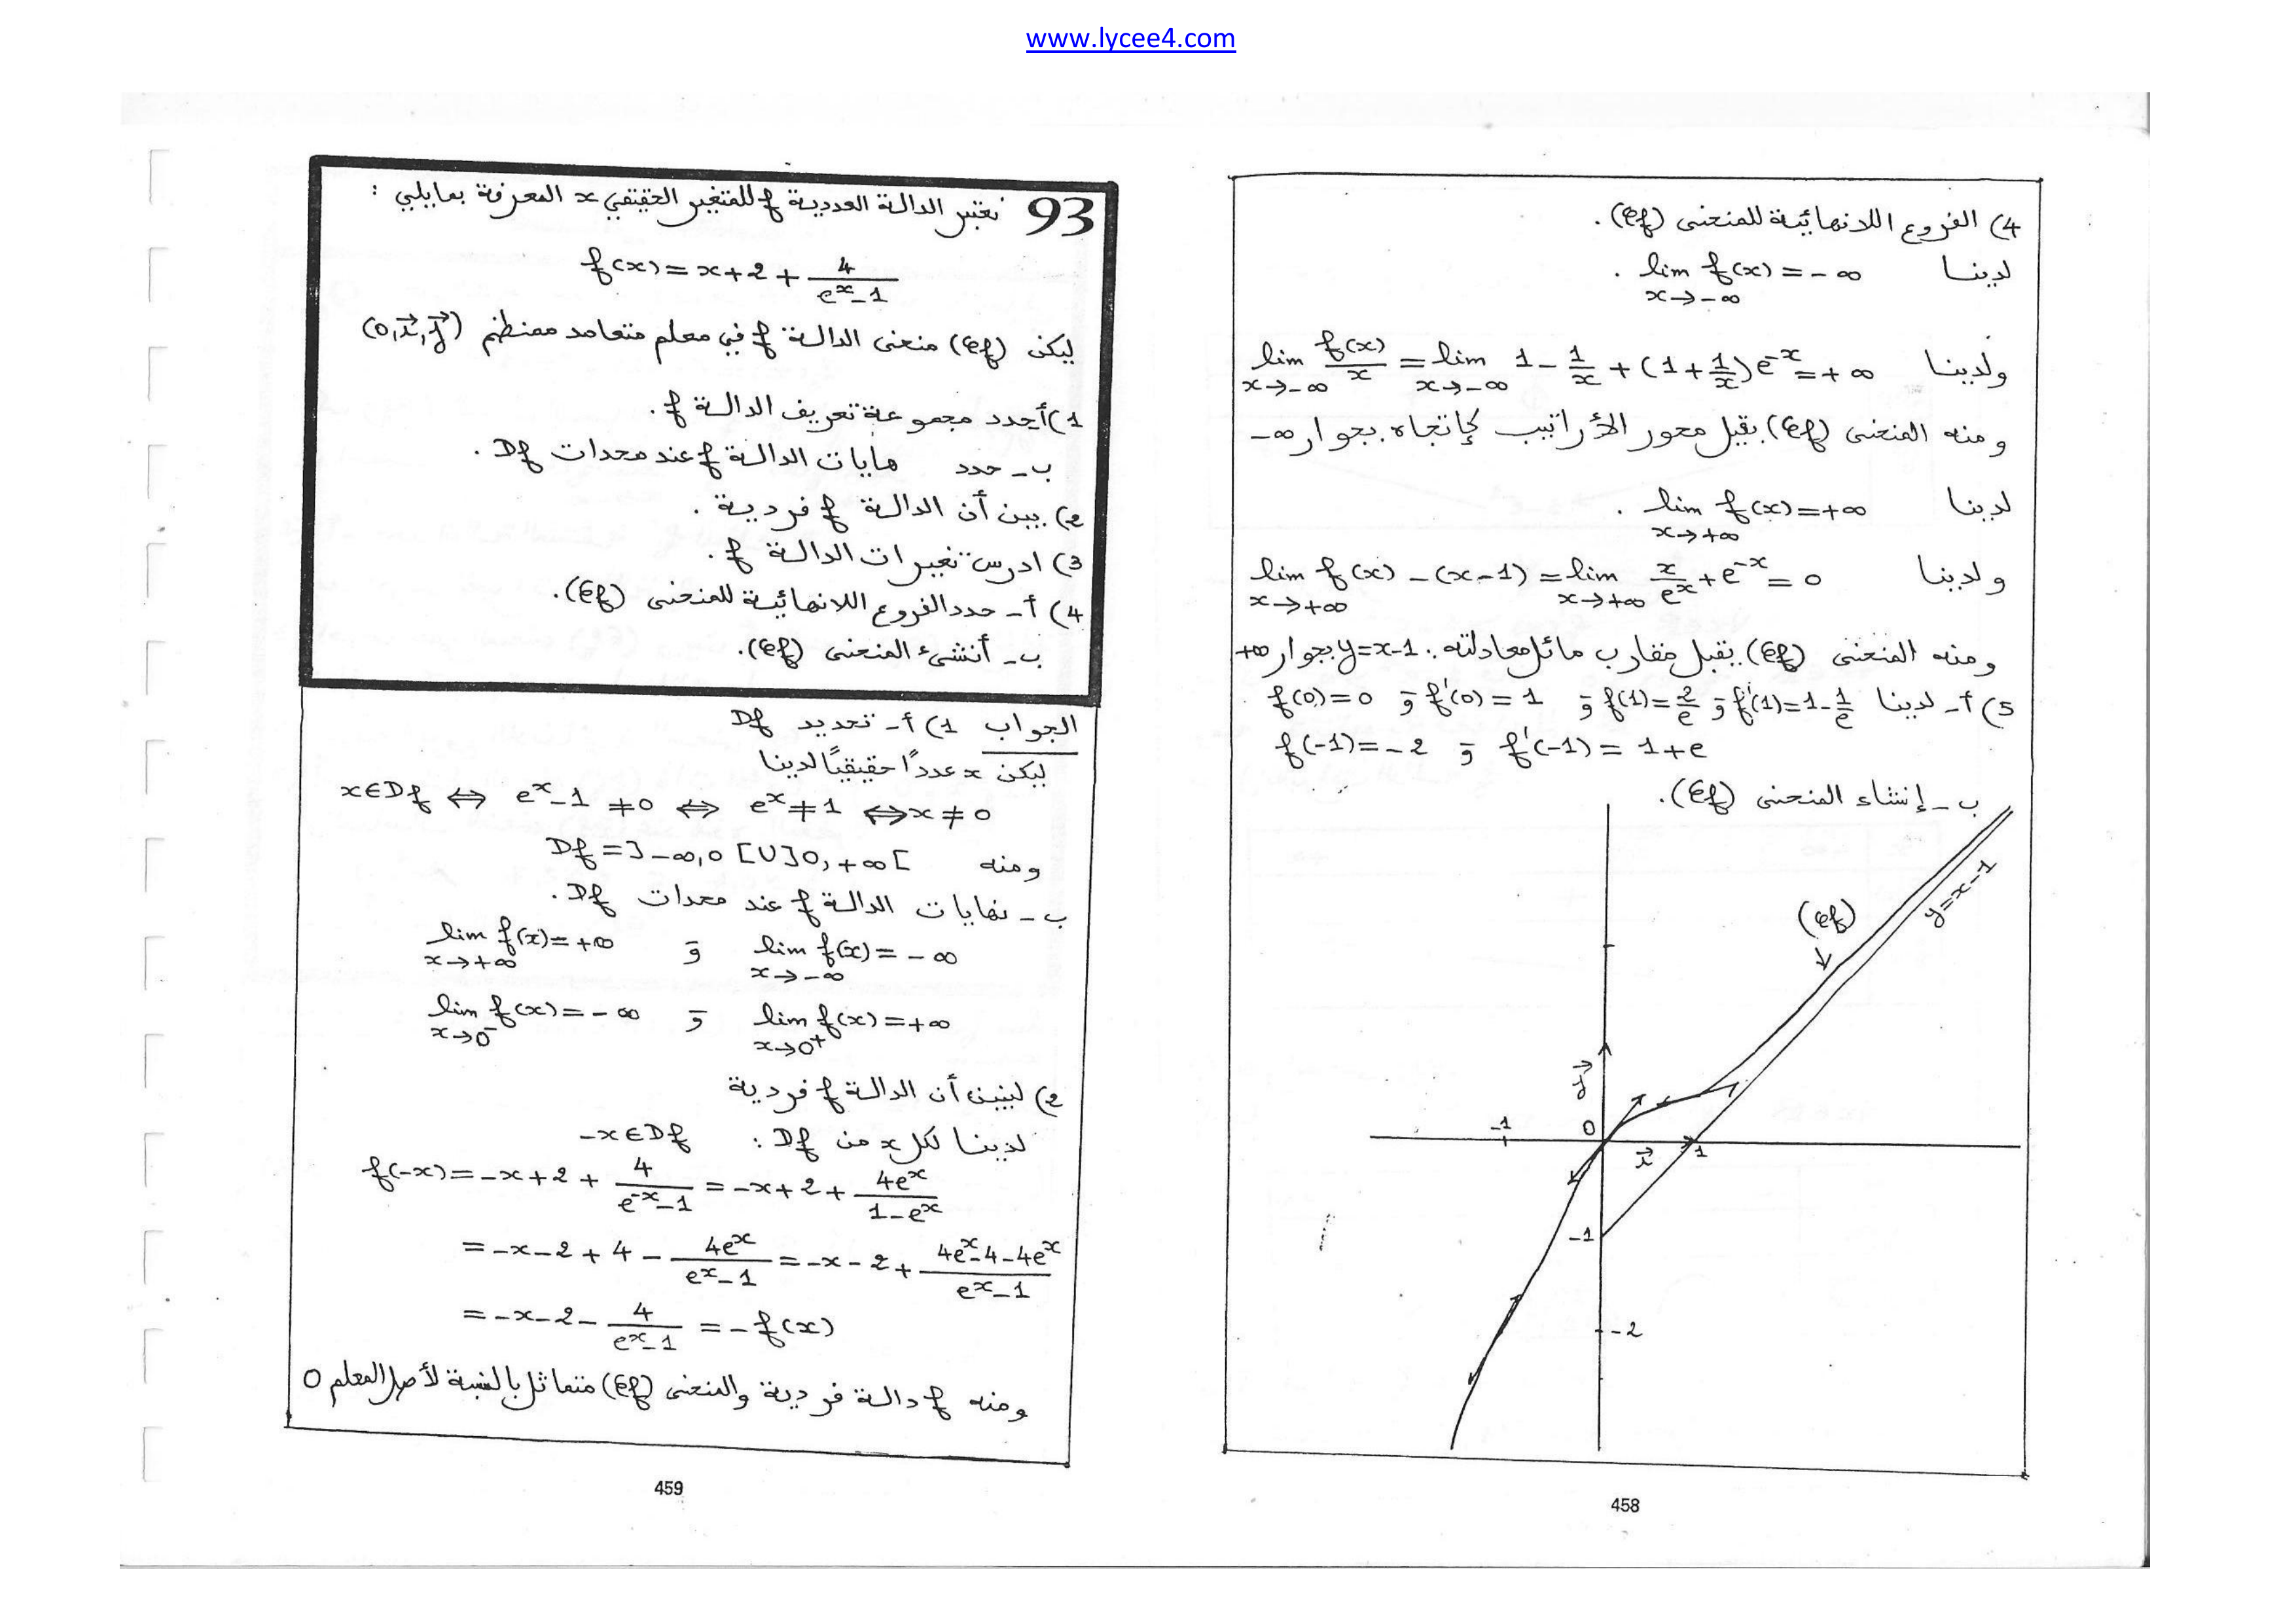 www.lycee4.com
4) الفروع اللانهائية للمنحنى (Cf).
لدينا lim f(x) = -∞ .
x→-∞
ولدينا lim f(x)/x = lim 1 - 1/x + (1 + 1/x)e^-x = +∞
x→-∞ x→-∞
ومنه المنحنى (Cf) يقبل محور الأراتيب كإتجاه بجوار -∞
لدينا lim f(x) = +∞ .
x→+∞
ولدينا lim f(x) - (x-1) = lim x/e^x + e^-x = 0
x→+∞ x→+∞
ومنه المنحنى (Cf) يقبل مقارب مائل معادلته: y=x-1 بجوار +∞
5) أ- لدينا f'(1) = 1 - 1/e و f(1) = 2/e و f'(0) = 1 و f(0) = 0
f(-1) = -2 و f'(-1) = 1+e
ب- إنشاء المنحنى (Cf).
(Cf)
y=x-1
j
-1 0 i 1
-1
-2
458
93 نعتبر الدالة العددية f للمتغير الحقيقي x المعرفة بمايلي :
f(x) = x + 2 + 4/(e^x - 1)
ليكن (Cf) منحنى الدالة f في معلم متعامد ممنظم (0, i, j)
1) أ حدد مجموعة تعريف الدالة f.
ب- حدد هايات الدالة f عند محدات Df .
2) بين أن الدالة f فردية .
3) ادرس تغيرات الدالة f.
4) أ- حدد الفروع اللانهائية للمنحنى (Cf).
ب- أنشىء المنحنى (Cf).
الجواب 1) أ- تحديد Df
ليكن x عدداً حقيقياً لدينا
x∈Df ⇔ e^x - 1 ≠ 0 ⇔ e^x ≠ 1 ⇔ x ≠ 0
ومنه Df = ]-∞,0[ U ]0,+∞[
ب- نهايات الدالة f عند محدات Df.
lim f(x) = +∞ و lim f(x) = -∞
x→+∞ x→-∞
lim f(x) = -∞ و lim f(x) = +∞
x→0^- x→0^+
2) لنبين أن الدالة f فردية
لدينا لكل x من Df : -x∈Df
f(-x) = -x + 2 + 4/(e^-x - 1) = -x + 2 + 4e^x/(1 - e^x)
= -x - 2 + 4 - 4e^x/(e^x - 1) = -x - 2 + (4e^x - 4 - 4e^x)/(e^x - 1)
= -x - 2 - 4/(e^x - 1) = -f(x)
ومنه f دالة فردية والمنحنى (Cf) متماثل بالنسبة لأصل المعلم 0
459